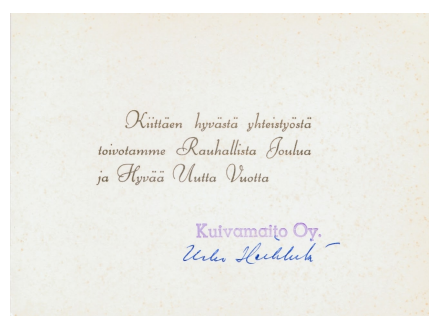 Kiittäen hyvästä yhteistyöstä
toivotamme Rauhallista Joulua
ja Hyvää Uutta Vuotta
Kuivamaito Oy.